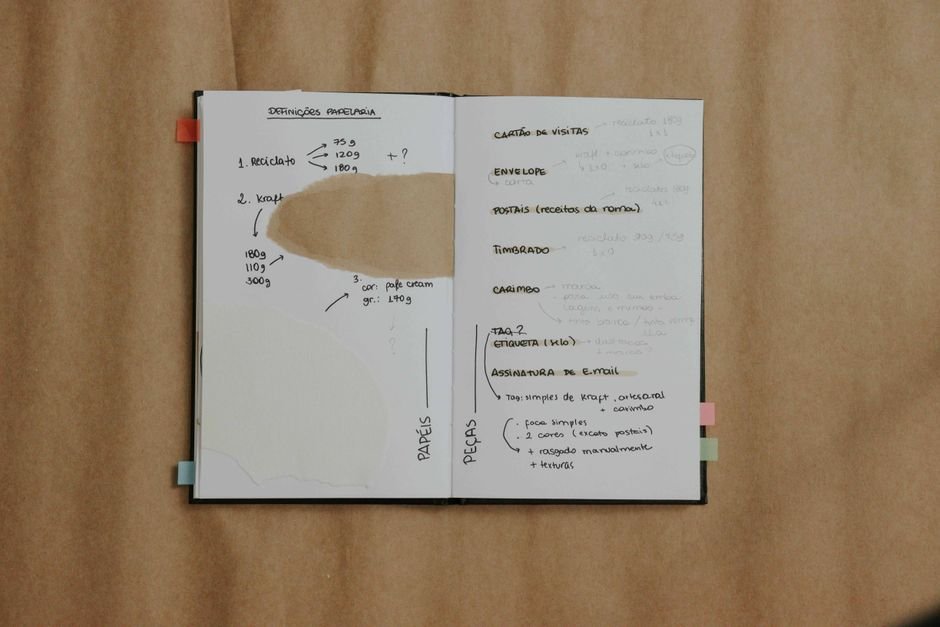 DEFINIÇÕES PAPELARIA
1. Reciclato
75g
120g
180g
+ ?
2. Kraft
180g
110g
300g
3.
cor: pafe cream
gr.: 170g
?
PAPÉIS
PEÇAS
CARTÃO DE VISITAS
reciclato 180g
ENVELOPE
kraft + carimbo
carta
POSTAIS (receitas da noma)
reciclato 180g
4x4
TIMBRADO
reciclato 90g / 75g
CARIMBO
marca
tinta branca / tinta
TAG ?
ETIQUETA (selo)
+ marca ?
ASSINATURA DE E.mail
TAG: simples de kraft, artesanal
+ carimbo
. faca simples
. 2 cores (exceto postais)
+ rasgado manualmente
+ texturas